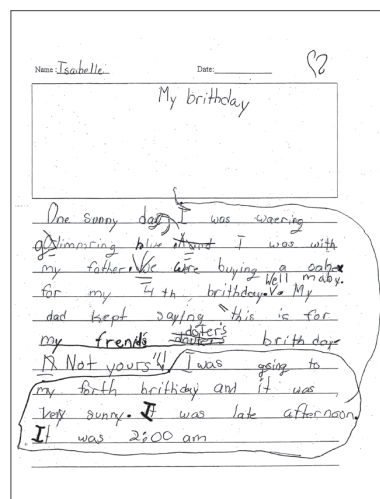 Name: Isabelle Date:
My brithday
One sunny day I was waering
glimmring blue I was with
my father. We were buying a cake
Well maby.
for my 4th brithday. My
dad kept saying "this is for
my frend's doter's brithday
Not yours"! I was going to
my forth brithday and it was
very sunny. It was late afternoon.
It was 2:00 am